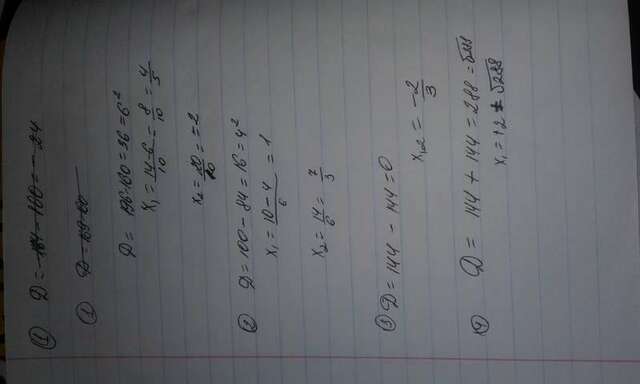 ① D = -144 - 180 = -24
① D - 169-60
D = 196-160 = 36 = 6²
x₁ = 14-6/10 = 8/10 = 4/5
x₂ = 20/10 = -2
② D = 100 - 84 = 16 = 4²
x₁ = 10-4/6 = 1
x₂ = 14/6 = 7/3
③ D = 144 - 144 = 0
x₁,₂ = -2/3
④ D = 144 + 144 = 288 = √288
x₁ = 12 + √288